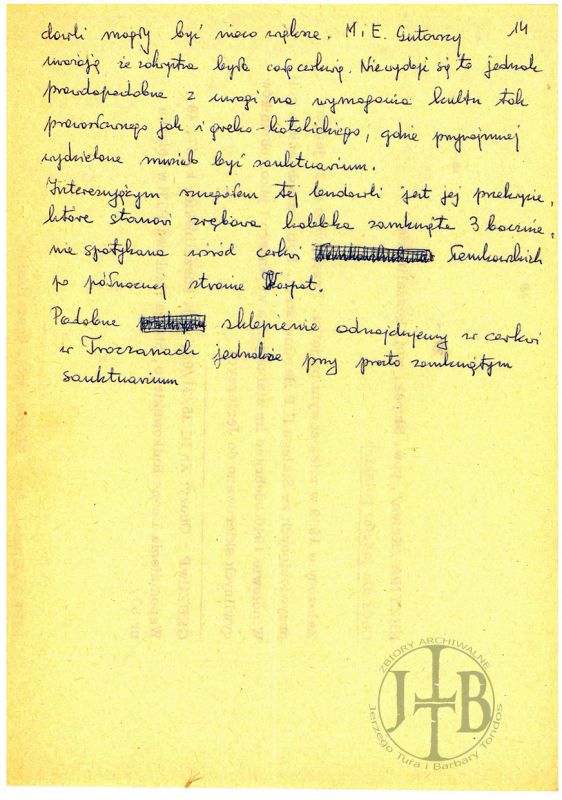 dowli mogły być nieco większe. M i E. Gutowscy 14
uważają że zakrystia była całą cerkwią. Nie wydaje się to jednak
prawdopodobne z uwagi na wymagania kultu tak
prawosławnego jak i greko-katolickiego, gdzie przynajmniej
wydzielone musiało być sanktuarium.
Interesującym szczegółem tej budowli jest jej przekrycie,
które stanowi zrębowa kolebka zamknięta 3 bocznie,
nie spotykana wśród cerkwi łemkowskich
po północnej stronie Karpat.
Podobne sklepienie odnajdujemy w cerkwi
w Troczanach jednakże przy prosto zamkniętym
sanktuarium
ZBIORY ARCHIWALNE
JTBT
Jerzego Tura i Barbary Tondos